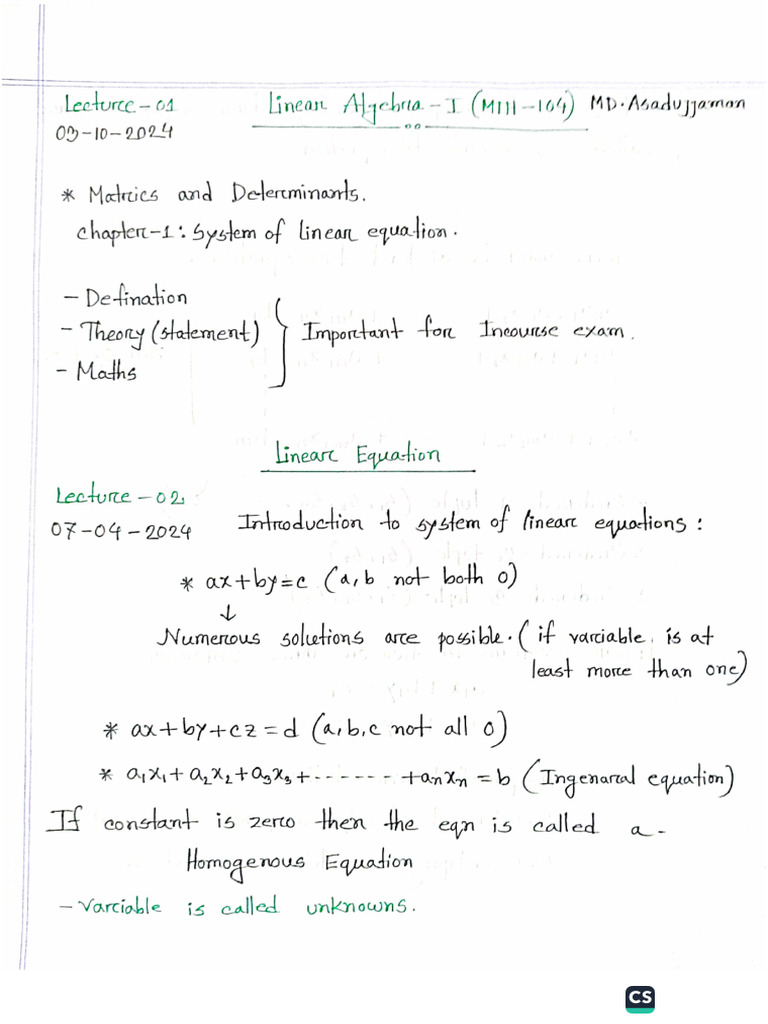 Lecture-01 Linear Algebra-I (MIII-104) MD. Asadujjaman
03-10-2024
* Matrics and Determinants.
Chapter-1: System of linear equation.
- Defination
- Theory (statement) } Important for Incourse exam.
- Maths
Linear Equation
Lecture-02
07-04-2024 Introduction to system of linear equations:
* ax+by=c (a, b not both 0)
↓
Numerous solutions are possible. (if variable is at
least more than one)
* ax+by+cz=d (a,b,c not all 0)
* a₁x₁+a₂x₂+a₃x₃+------+aₙxₙ=b (Ingenaral equation)
If constant is zero then the eqn is called a-
Homogenous Equation
- Variable is called unknowns.
CS